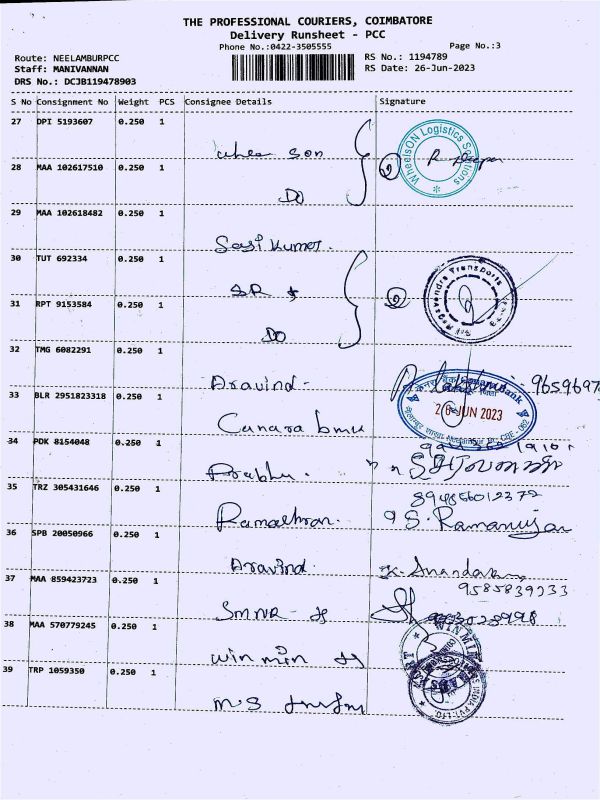 THE PROFESSIONAL COURIERS, COIMBATORE
Delivery Runsheet - PCC
Phone No.:0422-3505555
Page No.:3
Route: NEELAMBURPCC
RS No.: 1194789
Staff: MANIVANNAN
RS Date: 26-Jun-2023
DRS No.: DCJB119478903
S No Consignment No Weight PCS Consignee Details Signature
27 DPI 5193607 0.250 1
WheelsON Logistics Solutions
28 MAA 102617510 0.250 1 DO
29 MAA 102618482 0.250 1 Sasi Kumar.
30 TUT 692334 0.250 1 SR
31 RPT 9153584 0.250 1 DO
32 TMG 6082291 0.250 1 Aravind -
33 BLR 2951823318 0.250 1 Canara
Canara Bank
26 JUN 2023
34 PDK 8154048 0.250 1 Prabhu.
35 TRZ 305431646 0.250 1
S. Ramanujan
36 SPB 20050966 0.250 1 Aravind.
9585839233
37 MAA 859423723 0.250 1 SMNR
38 MAA 570779245 0.250 1 win min
39 TRP 1059350 0.250 1 M.S